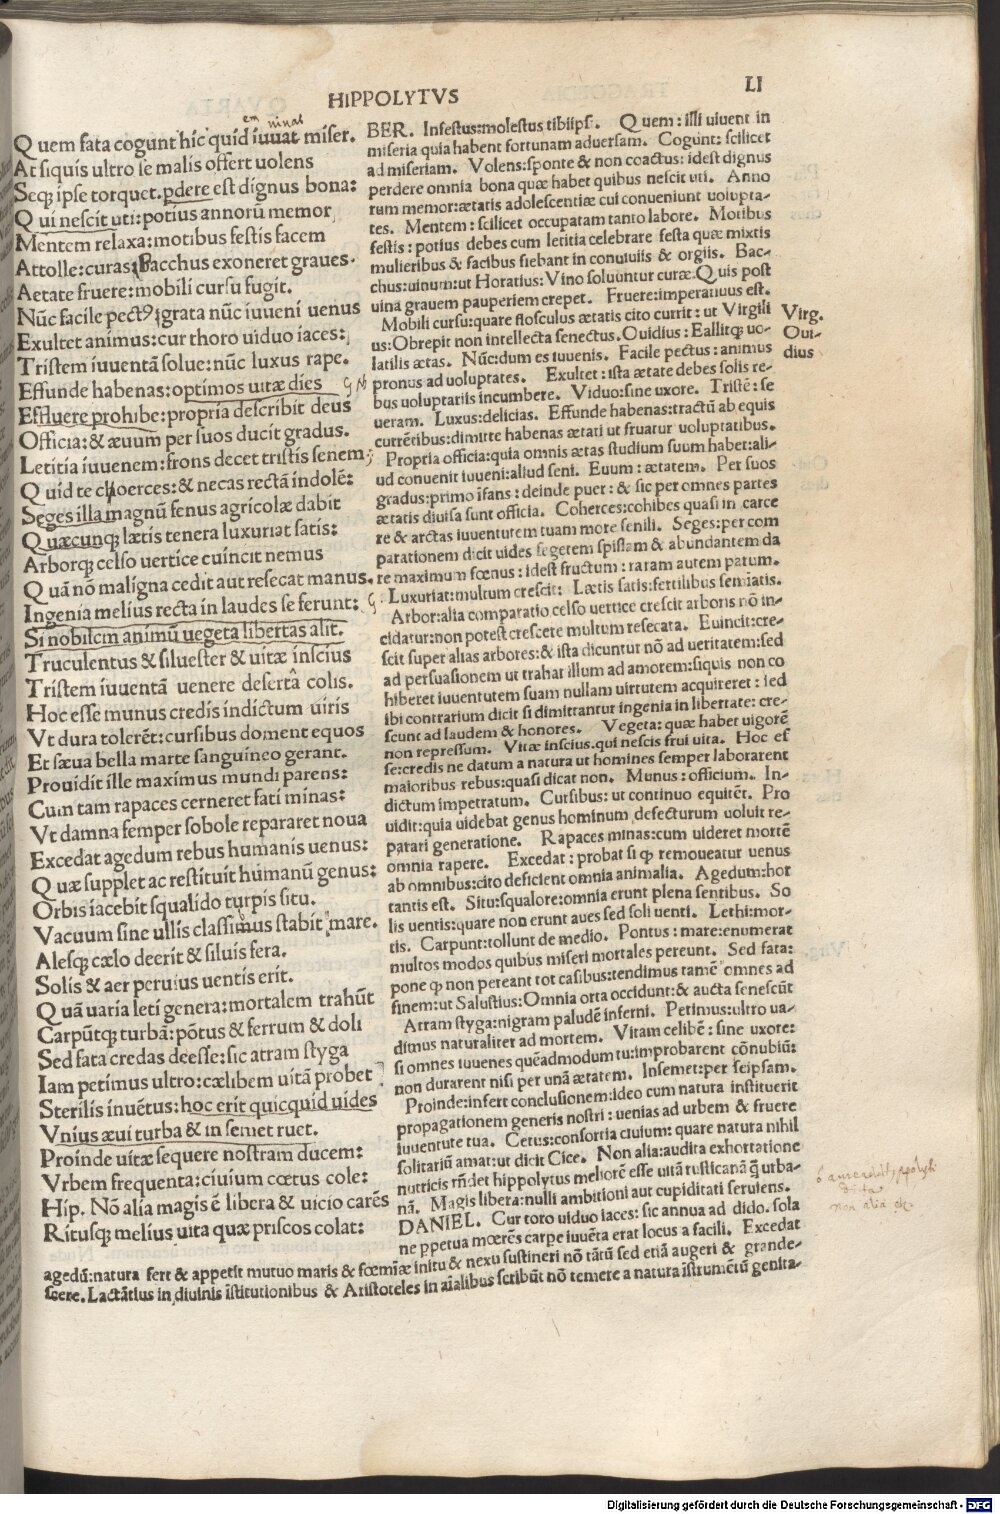 HIPPOLYTVS
LI
Quem fata cogunt hic quid iuuat miser.
At siquis ultro se malis offert uolens
Seqȝ ipse torquet. ꝑdere est dignus bona:
Qui nescit uti: potius annorū memor
Mentem relaxa: motibus festis facem
Attolle: curas: Bacchus exoneret graues.
Aetate fruere: mobili cursu fugit.
Nūc facile pectꝰ: grata nūc iuueni uenus
Exultet animus: cur thoro uiduo iaces:
Tristem iuuentā solue: nūc luxus rape.
Effunde habenas: optimos uitæ dies
Effluere prohibe: propria describit deus
Officia: & æuum per suos ducit gradus.
Letitia iuuenem: frons decet tristis senem
Quid te choerces: & necas rectā indolē:
Seges illa magnū fenus agricolæ dabit
Quæcunqȝ lætis tenera luxuriat satis:
Arborqȝ celso uertice euincit nemus
Quā nō maligna cedit aut resecat manus.
Ingenia melius recta in laudes se ferunt:
Si nobilem animū uegeta libertas alit.
Truculentus & siluester & uitæ inscius
Tristem iuuentā uenere desertā colis.
Hoc esse munus credis indictum uiris
Vt dura tolerēt: cursibus doment equos
Et sæua bella marte sanguineo gerant.
Prouidit ille maximus mundi parens:
Cum tam rapaces cerneret fati minas:
Vt damna semper sobole repararet noua
Excedat agedum rebus humanis uenus:
Quæ supplet ac restituit humanū genus:
Orbis iacebit squalido turpis situ.
Vacuum sine ullis classimus stabit mare.
Alesqȝ cælo deerit & siluis fera.
Solis & aer peruius uentis erit.
Quā uaria leti genera: mortalem trahūt
Carpūtqȝ turbā: pōtus & ferrum & doli
Sed fata credas deesse: sic atram styga
Iam petimus ultro: cælibem uitā probet
Sterilis inuētus: hoc erit quicquid uides
Vnius æui turba & in semet ruet.
Proinde uitæ sequere nostram ducem:
Vrbem frequenta: ciuium cœtus cole:
Hip. Nō alia magis ē libera & uicio carēs
Ritusqȝ melius uita quæ priscos colat:
BER. Infestus: molestus tibiipsi. Quem: illi uiuent in
miseria quia habent fortunam aduersam. Cogunt: scilicet
ad miseriam. Volens: sponte & non coactus: idest dignus
perdere omnia bona quæ habet quibus nescit uti. Anno
rum memor: ætatis adolescentiæ cui conueniunt uolupta-
tes. Mentem: scilicet occupatam tanto labore. Motibus
festis: potius debes cum letitia celebrare festa quæ mixtis
mulieribus & facibus fiebant in conuiuiis & orgiis. Bac-
chus: uinum: ut Horatius: Vino soluuntur curæ. Quis post
uina grauem pauperiem crepet. Fruere: imperatiuus est.
Mobili cursu: quare flosculus ætatis cito currit: ut Virgili
us: Obrepit non intellecta senectus. Ouidius: Eallitqȝ uo-
latilis ætas. Nūc: dum es iuuenis. Facile pectus: animus
pronus ad uoluptates. Exultet: ista ætate debes solis re-
bus uoluptariis incumbere. Viduo: sine uxore. Tristē: se
ueram. Luxus: delicias. Effunde habenas: tractū ab equis
currētibus: dimitte habenas ætati ut fruatur uoluptatibus.
Propria officia: quia omnis ætas studium suum habet: ali-
ud conuenit iuueni: aliud seni. Euum: ætatem. Per suos
gradus: primo īfans: deinde puer: & sic per omnes partes
ætatis diuisa sunt officia. Coherces: cohibes quasi in carce
re & arctas iuuentutem tuam more senili. Seges: per com
parationem dicit uides segetem spissam & abundantem da
re maximum fœnus: idest fructum: raram autem parum.
Luxuriat: multum crescit: Lætis satis: fertilibus semīatis.
Arbor: alia comparatio celso uertice crescit arboris nō in-
cidatur: non potest crescere multum resecata. Euincit: cre-
scit super alias arbores: & ista dicuntur nō ad ueritatem: sed
ad persuasionem ut trahat illum ad amorem: siquis non co
hiberet iuuentutem suam nullam uirtutem acquireret: sed
ibi contrarium dicit si dimittantur ingenia in libertate: cre-
scunt ad laudem & honores. Vegeta: quæ habet uigorē
non repressum. Vitæ inscius. qui nescis frui uita. Hoc es
se: credis ne datum a natura ut homines semper laborarent
maioribus rebus: quasi dicat non. Munus: officium. In-
dictum impetratum. Cursibus: ut continuo equitēt. Pro
uidit: quia uidebat genus hominum defecturum uoluit re-
parari generatione. Rapaces minas: cum uideret mortē
omnia rapere. Excedat: probat si ꝙ remoueatur uenus
ab omnibus: cito deficient omnia animalia. Agedum: hor
tantis est. Situ: squalore: omnia erunt plena sentibus. So
lis uentis: quare non erunt aues sed soli uenti. Lethi: mor-
tis. Carpunt: tollunt de medio. Pontus: mare: enumerat
multos modos quibus miseri mortales pereunt. Sed fata:
pone ꝙ non pereant tot casibus: tendimus tamē omnes ad
finem: ut Salustius: Omnia orta occidunt: & aucta senescūt
Atram styga: nigram paludē inferni. Petimus: ultro ua-
dimus naturaliter ad mortem. Vitam celibē: sine uxore:
si omnes iuuenes quēadmodum tu: improbarent cōnubiū:
non durarent nisi per unā ætatem. Insemet: per seipsam.
Proinde: infert conclusionem: ideo cum natura instituerit
propagationem generis nostri: uenias ad urbem & fruere
iuuentute tua. Cetus: consortia ciuium: quare natura nihil
solitariū amat: ut dicit Cice. Non alia: audita exhortatione
nutricis rñdet hippolytus meliorē esse uitā rusticanā ꝗ̄ urba-
nā. Magis libera: nulli ambitioni aut cupiditati seruiens.
DANIEL. Cur toro uiduo iaces: sic annua ad dido. sola
ne ꝑpetua mœrēs carpe iuuēta erat locus a facili. Excedat
agedū: natura fert & appetit mutuo maris & fœmīæ initu & nexu sustineri nō tātū sed etiā augeri & grande-
scere. Lactātius in diuinis īstitutionibus & Aristoteles in aīalibus scribūt nō temere a natura īstrumētū genita-
Virg.
Oui-
dius
Digitalisierung gefördert durch die Deutsche Forschungsgemeinschaft - DFG